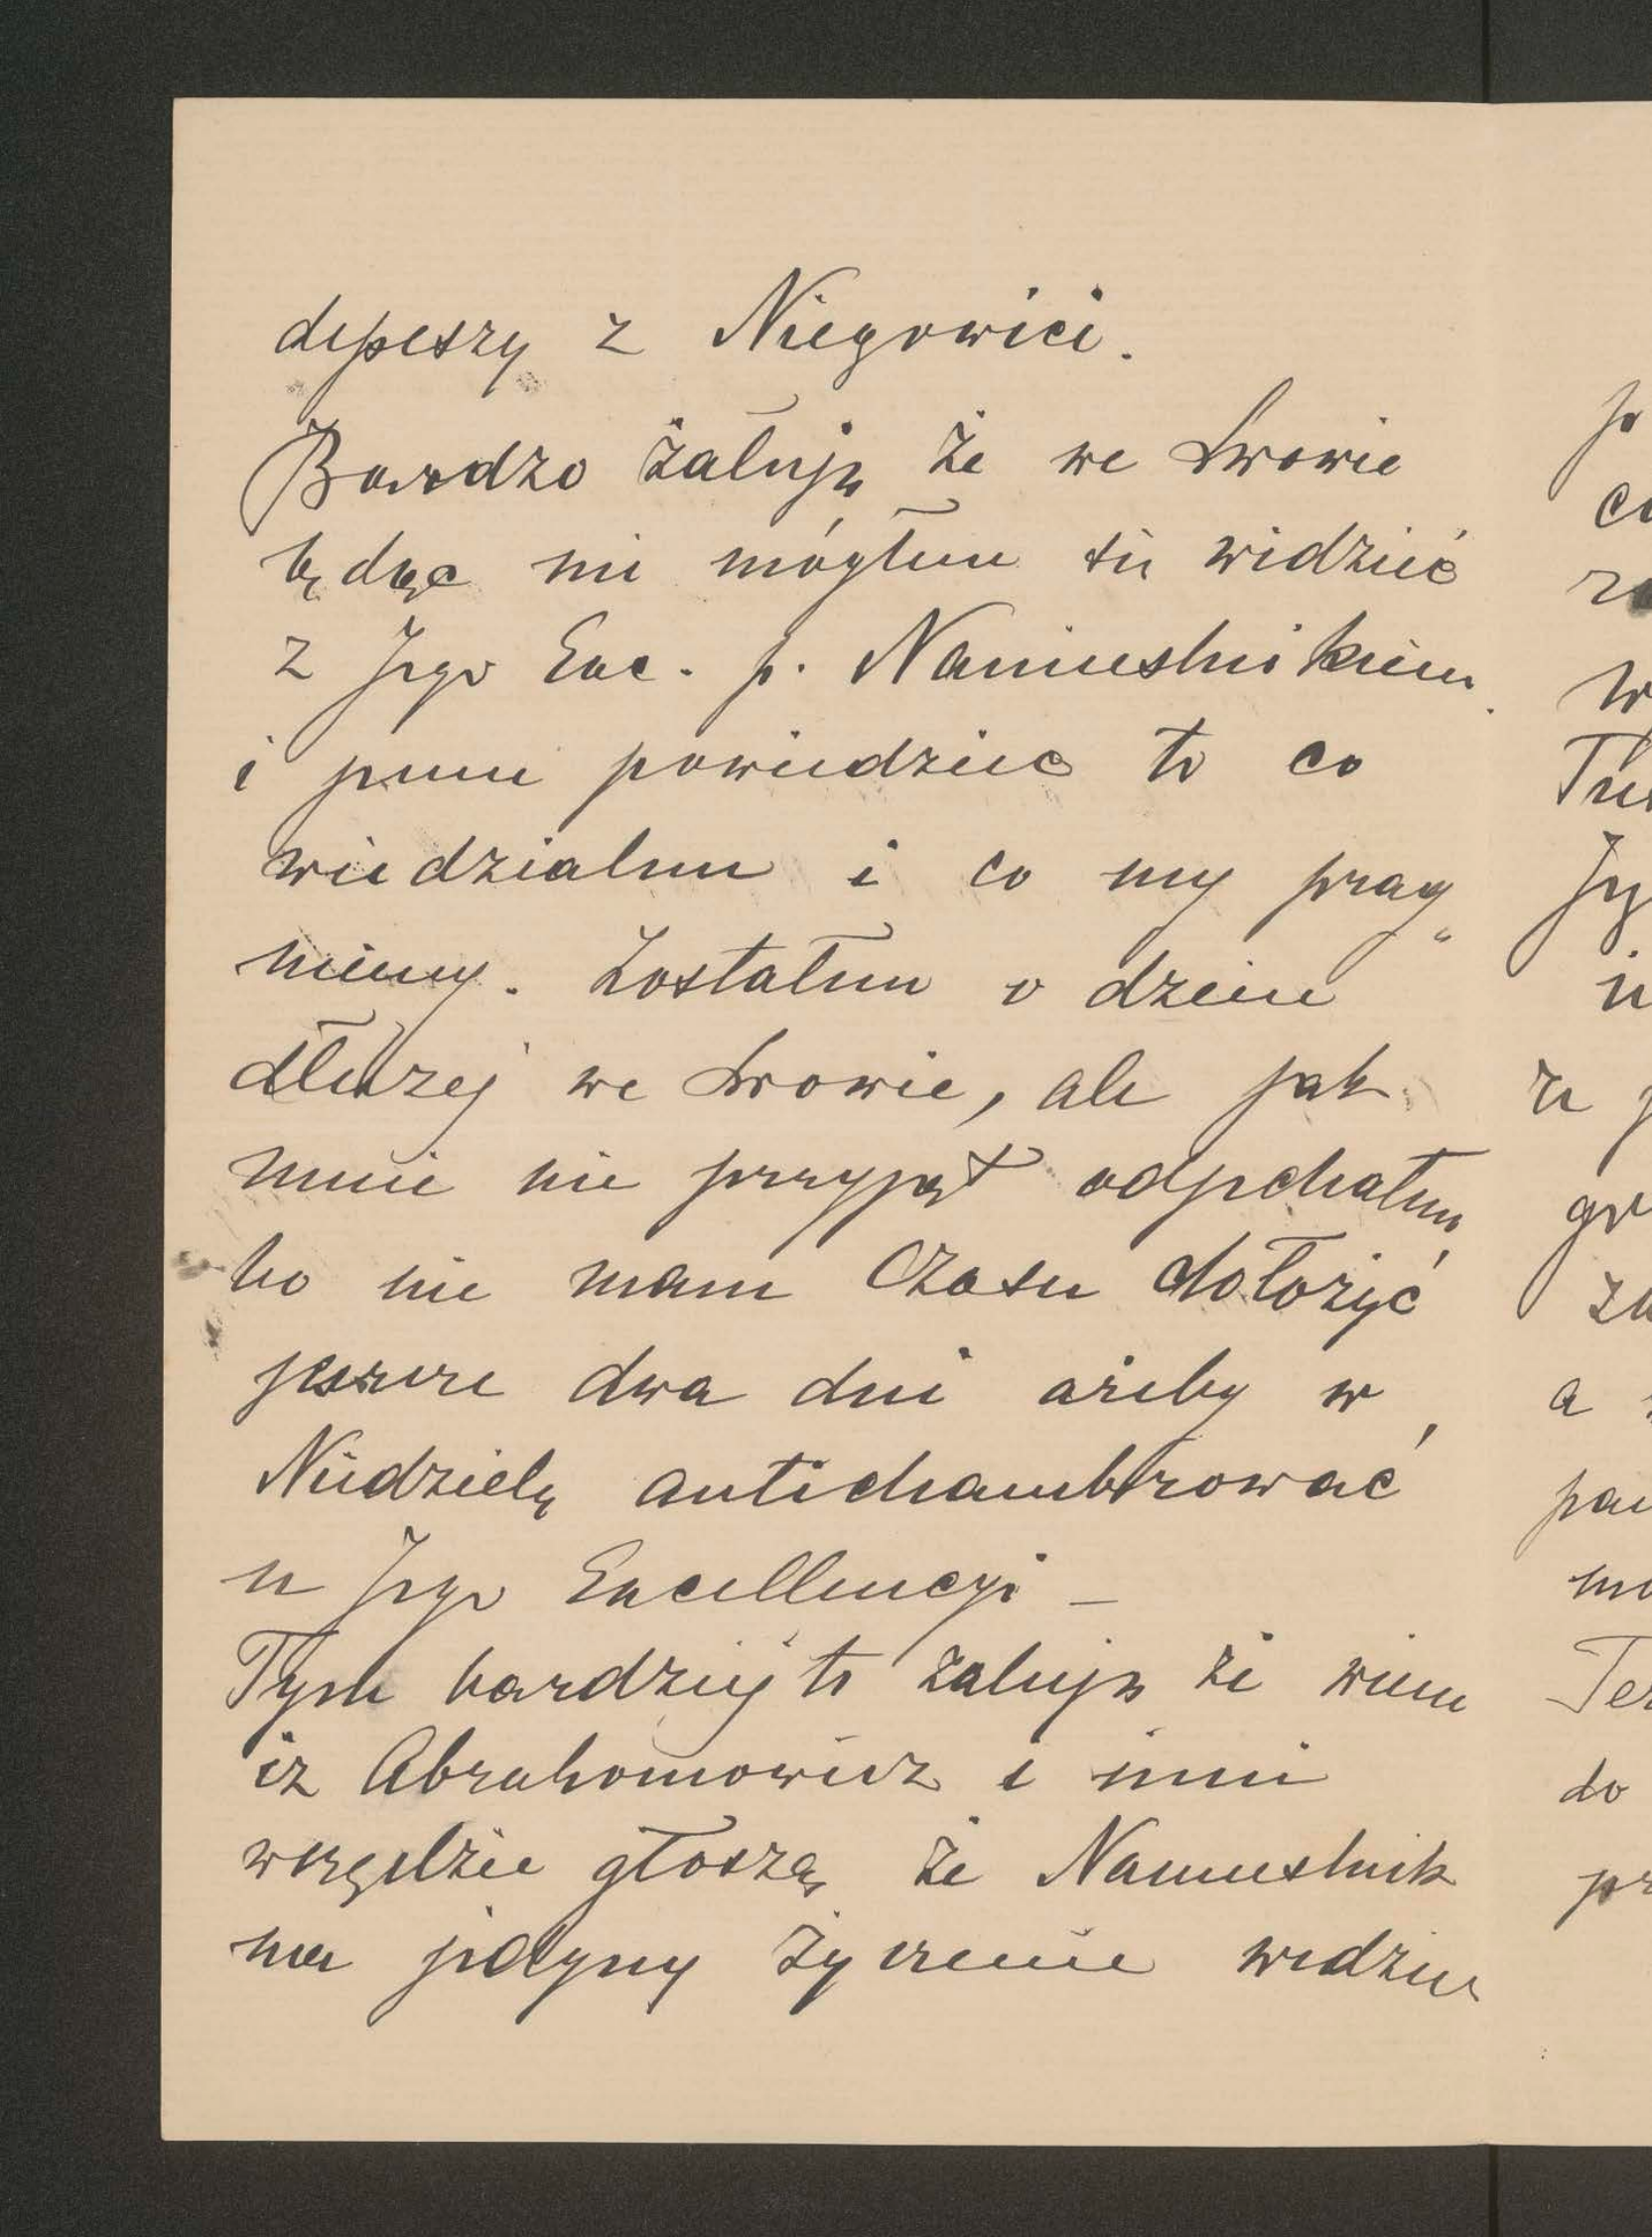 depeszy z Niegowici.
Bardzo żałuję że we Lwowie
będąc nie mogłem się widzieć
z Jego Exc. p. Namiestnikiem
i jemu powiedziec to co
wiedzialem i co my prag„
niemy. Zostałem o dzień
dłużej we Lwowie, ale jak
mnie nie przyjął odjechałem
bo nie mam czasu dołożyć
jeszcze dwa dni ażeby w
Niedzielę antichambrować
u Jego Excellencyi –
Tym bardziej to żaluję że wiem
iż Abrahamowicz i inni
wszędzie głoszą że Namiestnik
ma jedyny życzenie widzieć